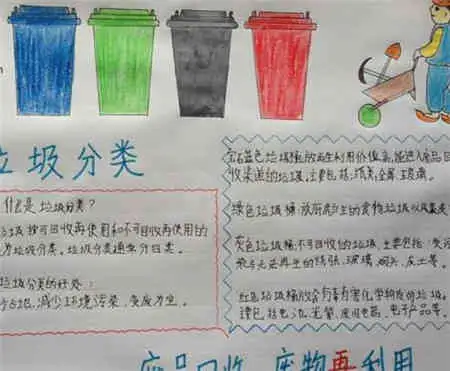 垃圾分类
什么是垃圾分类?
垃圾按可回收再使用和不可回收再使用的
为垃圾分类。垃圾分类通常分四类。
垃圾分类的好处:
减少环境污染、变废为宝。
宝石蓝色垃圾桶:放再生利用价值高,能进入废品回
收渠道的垃圾,主要包括:纸类、金属、玻璃。
绿色垃圾桶:放厨房产生的食物垃圾以及
灰色垃圾桶:不可回收的垃圾,主要包括:
纸张、玻璃、烟头、灰土等。
红色垃圾桶:放含有毒有害化学物质的垃圾。
包括电池、
电子产品等。
废品回收 废物再利用